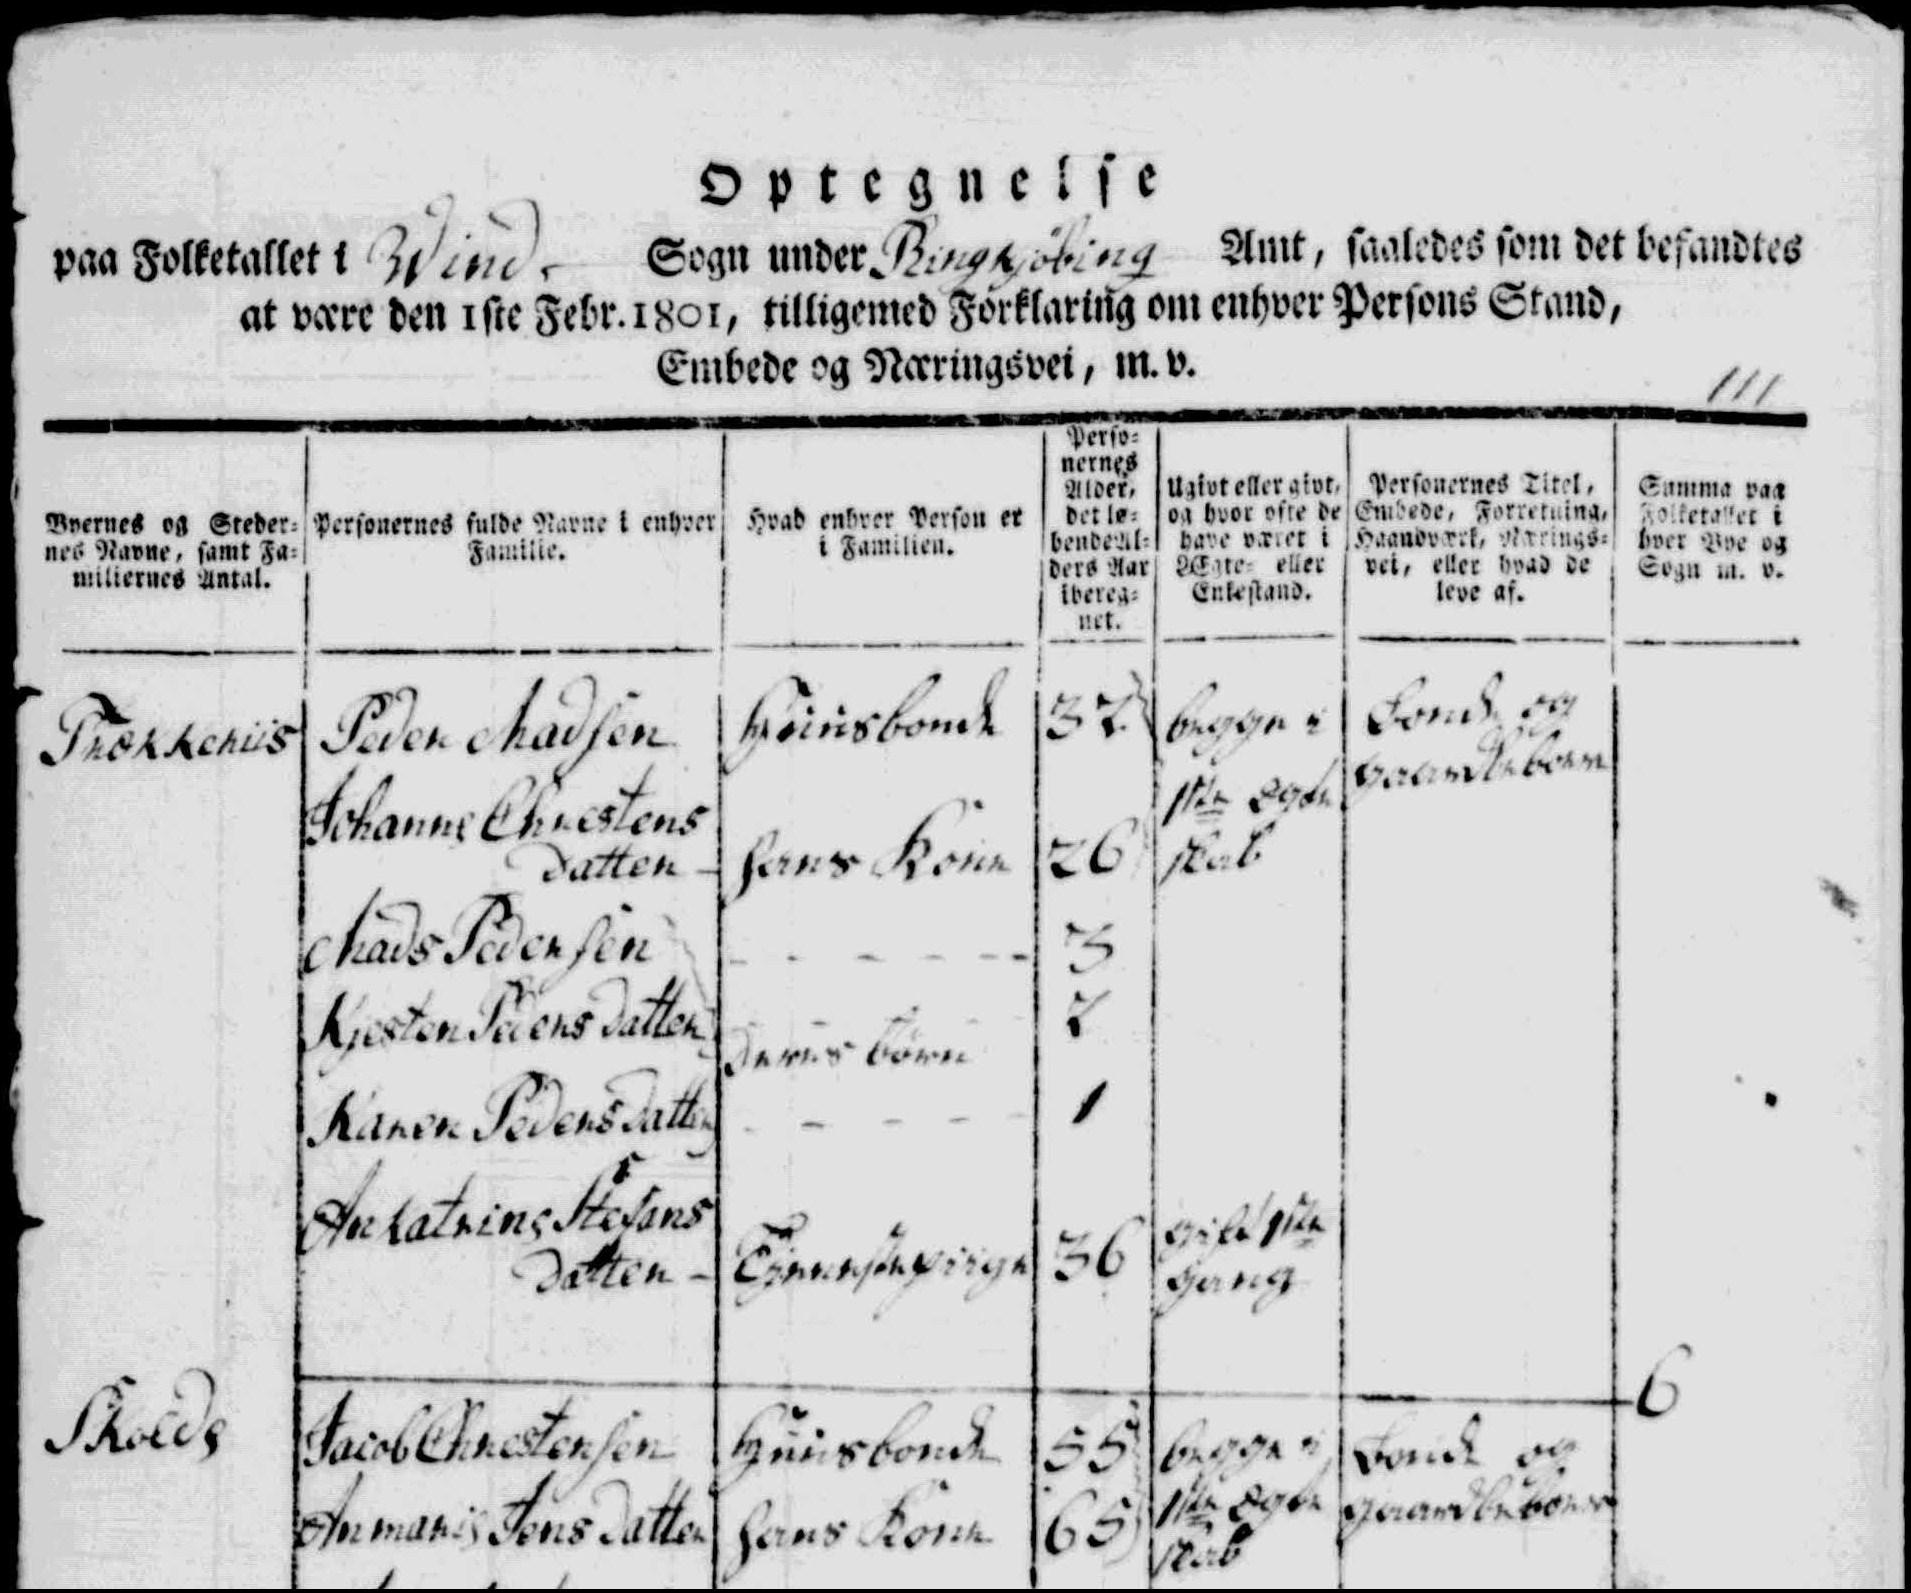 Optegnelse
paa Folketallet i Wind. Sogn under Ringkjöbing Amt, saaledes som det befandtes
at være den 1ste Febr. 1801, tilligemed Forklaring om enhver Persons Stand,
Embede og Næringsvei, m. v.
111
Byernes og Steder-
nes Navne, samt Fa-
miliernes Antal.
Personernes fulde Navne i enhver
Familie.
Hvad enhver Person er
i Familien.
Perso-
nernes
Alder,
det lø-
bende Al-
ders Aar
ibereg-
net.
Ugivt eller givt,
og hvor ofte de
have været i
Ægte- eller
Enkestand.
Personernes Titel,
Embede, Forretning,
Haandværk, Nærings-
vei, eller hvad de
leve af.
Summa paa
Folketallet i
hver Bye og
Sogn m. v.
Trækkeriis Peder Madsen Huusbonde 32 begge i Bonde og
gaardbeboer
Johanne Chrestens
1ste Egte
Datter - hans Kone 26 skab
Mads Pedersen - - - - - - 3
Kjesten Peders Datter 2
Deres børn
Karen Peders Datter - - - - - 1
Ankatrine Stefans
gift 1ste
Datter - Tjenestepige 36 gang
6
Skolde Jacob Chrestensen Huusbonde 55 begge i Bonde og
Anmarie Jens Datter hans Kone 65 1ste Egte gaardbeboer
skab